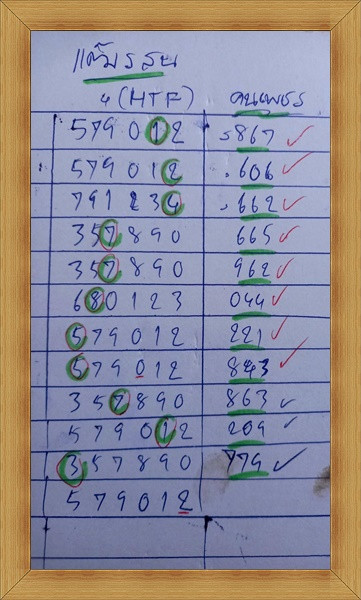 แต้มรสน
4 (HTF) คนเพชร
579012 5867
579012 .606
791234 662
357890 665
357890 962
680123 044
579012 221
579012 843
357890 863
579012 209
357890 779
579012